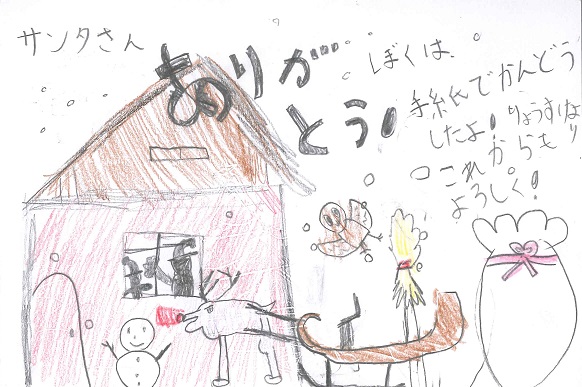 サンタさん
ありが
とう!
ぼくは、
手紙でかんどう
したよ!りょうすけなり
これからも
よろしく!